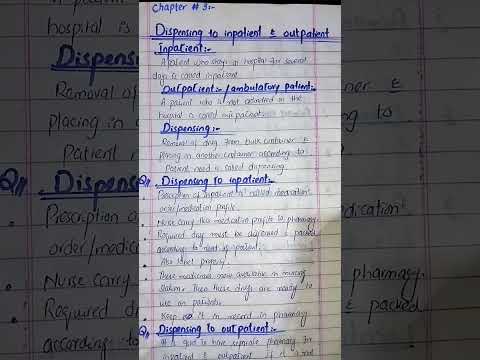 Chapter # 3:-
Dispensing to inpatient & outpatient
Inpatient:-
A patient who stays in hospital for several
days is called inpatient
Outpatient:-/ambulatory patient:-
A patient who is not admitted in the
hospital is called outpatient.
Dispensing:-
Removal of drug from bulk container &
placing in another container according to
Patient need is called dispensing.
Q11. Dispensing to inpatient:-
Prescription of inpatient is called medication
order/medication profile.
Nurse carry this medication profile to pharmacy.
Required drug must be dispensed & packed
according to need of patient.
Also label properly.
These medicines now available in nursing
station. Then these drugs are ready to
use on patients.
Keep it in record in pharmacy
Dispensing to outpatient:-
It is good to have separate pharmacy for
inpatient & outpatient if it is not